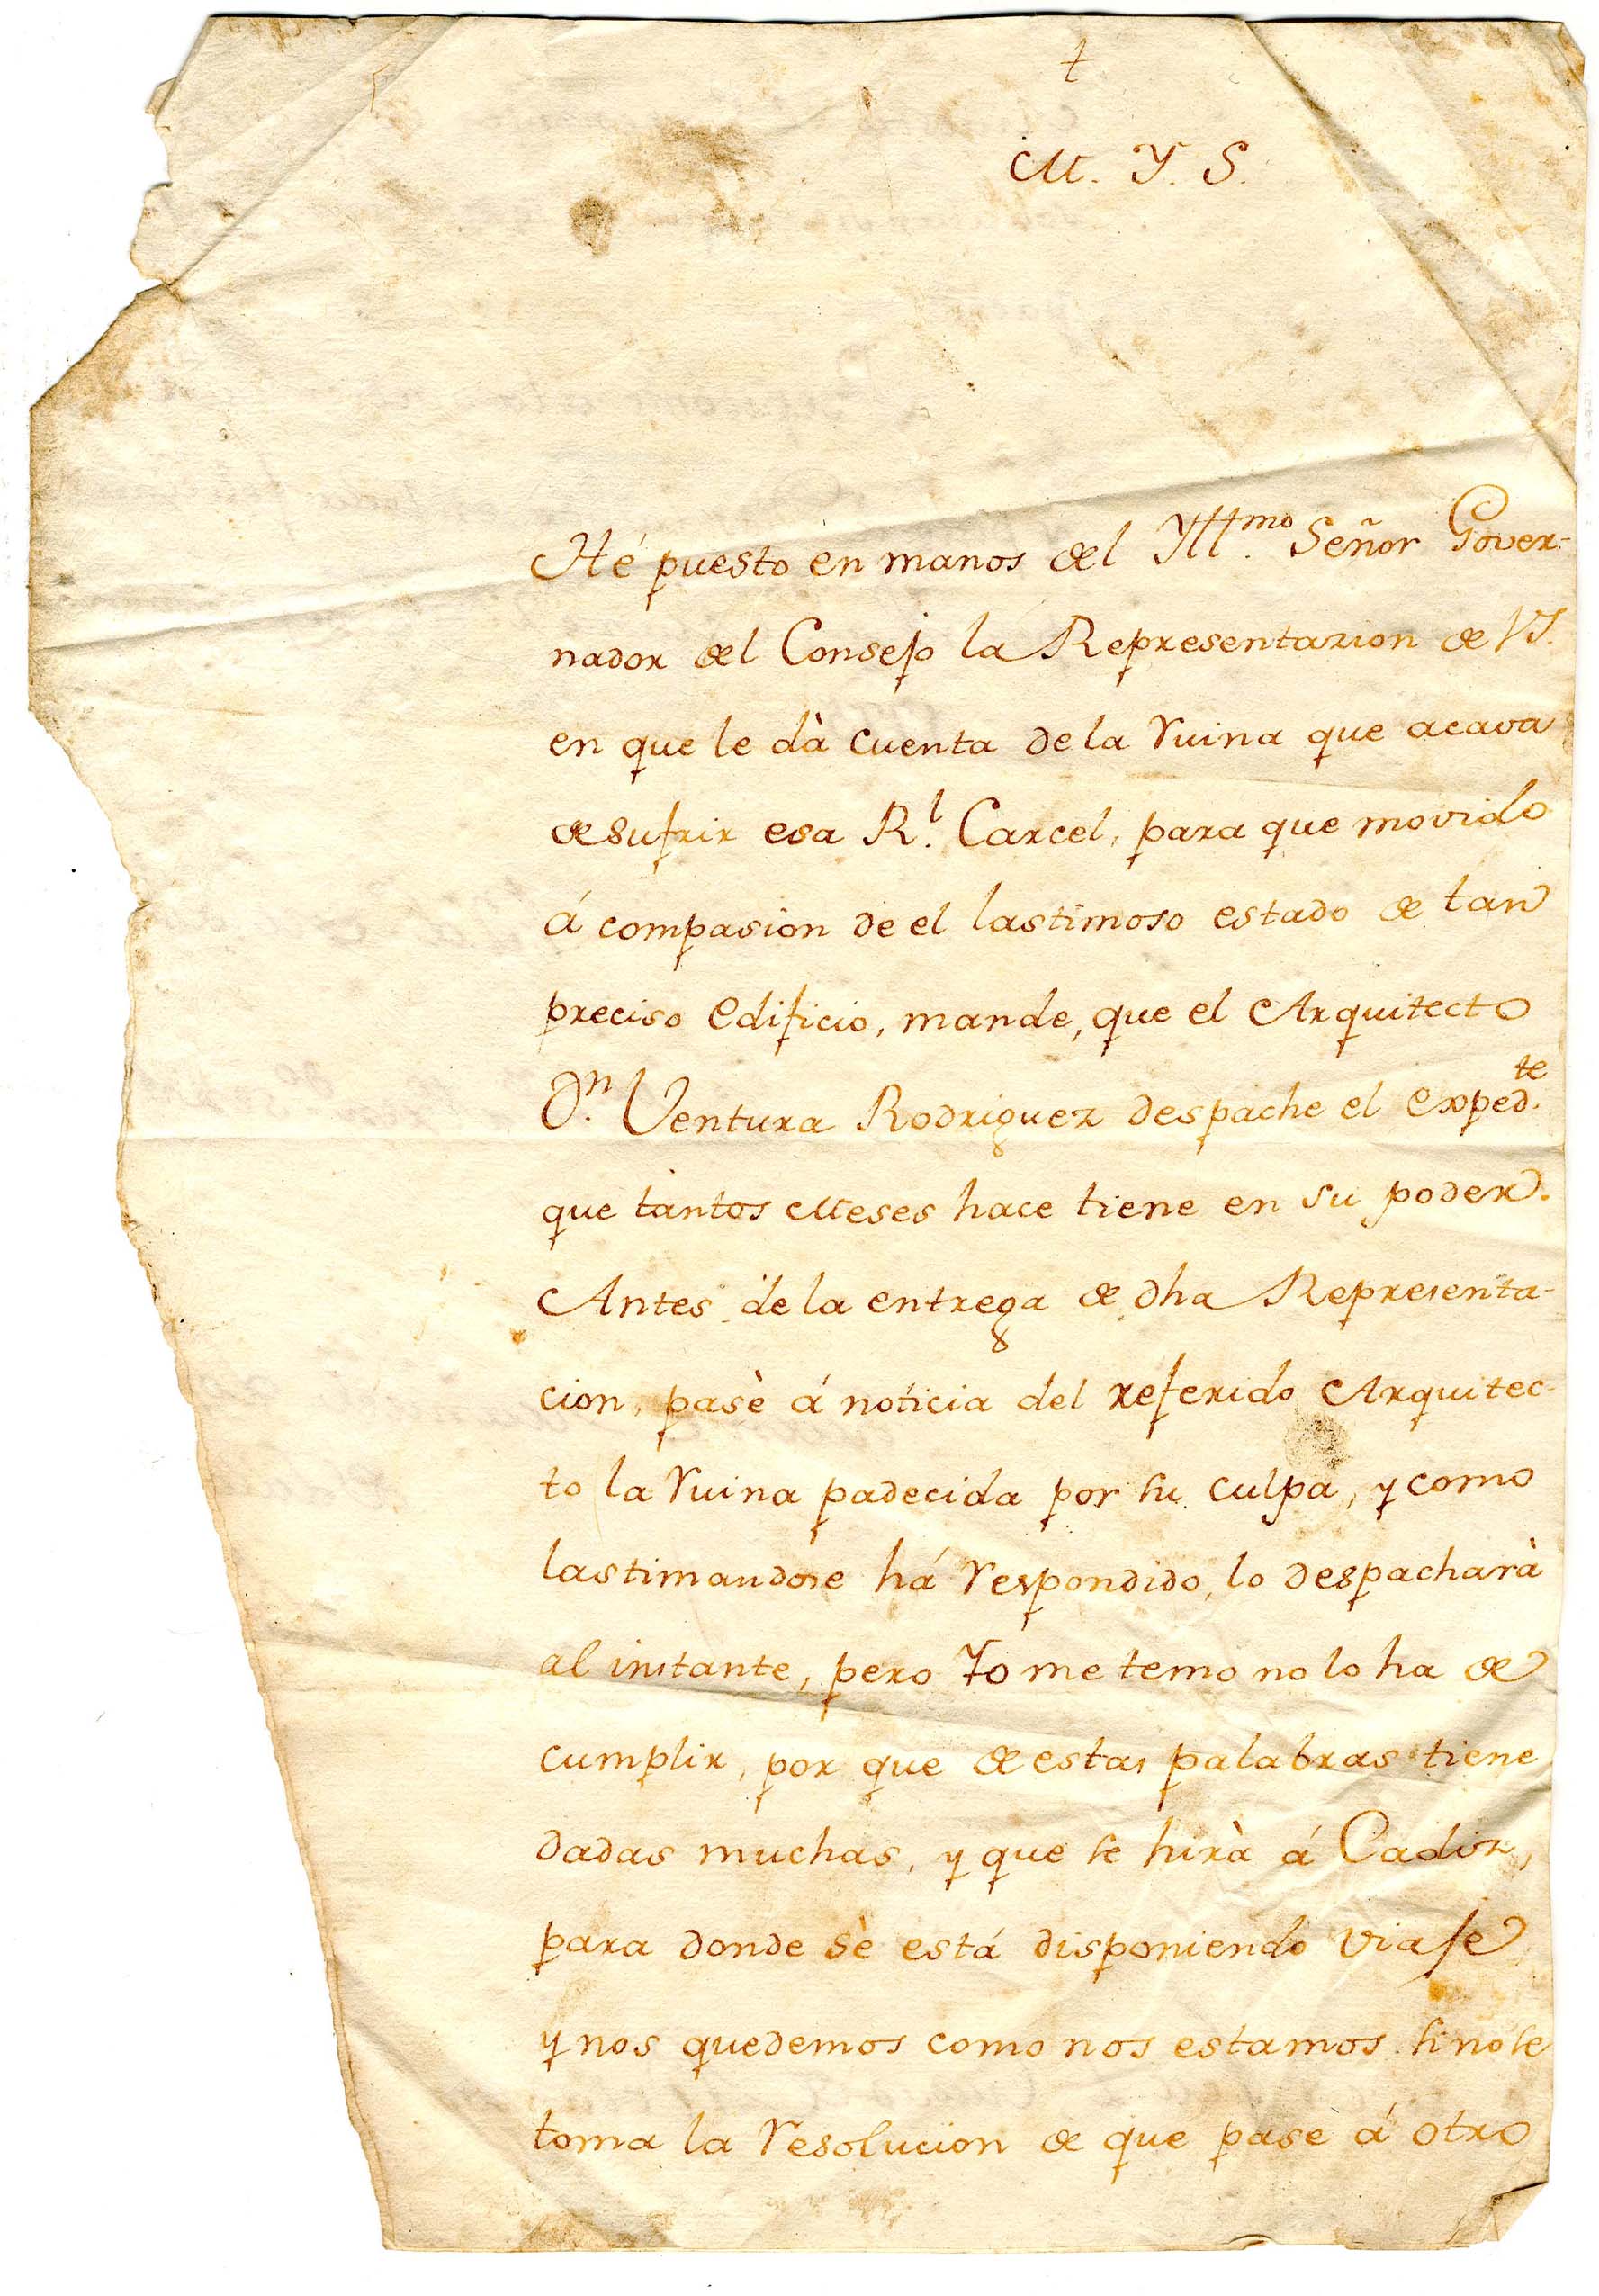 †
M. Y. S.
Hé puesto en manos del Yll.mo Señor Gover-
nador del Consejo la Representazion de VS.
en que le dà cuenta de la ruina que acava
de sufrir esa R.l Carcel, para que movido
á compasion de el lastimoso estado de tan
preciso edificio, mande, que el Arquitecto
D.n Ventura Rodriguez despache el exped.te
que tantos Meses hace tiene en su poder.
Antes de la entrega de dha Representa-
cion, pasè á noticia del referido Arquitec-
to la ruina padecida por su culpa, y como
lastimandose há respondido, lo despacharà
al instante, pero Yo me temo no lo ha de
cumplir, por que de estas palabras tiene
dadas muchas, y que se hirà á Cadiz,
para donde sè está disponiendo viaje
y nos quedemos como nos estamos si no se
toma la resolucion de que pase á otro